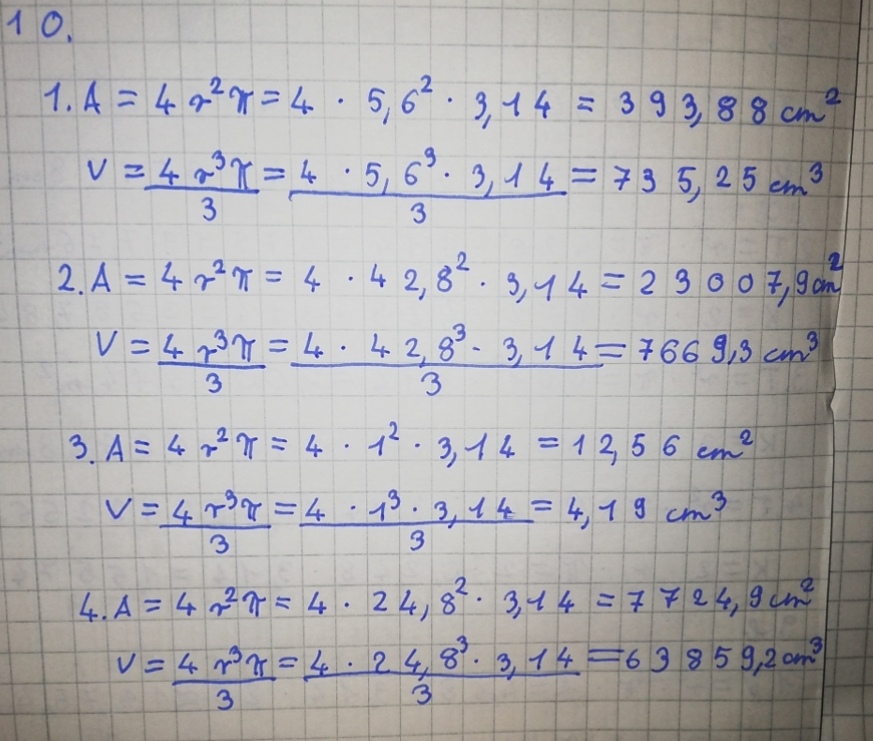 10.
1. A = 4 r²π = 4 · 5,6² · 3,14 = 393,88 cm²
V = 4 r³π / 3 = 4 · 5,6³ · 3,14 / 3 = 735,25 cm³
2. A = 4 r²π = 4 · 42,8² · 3,14 = 23007,9 cm²
V = 4 r³π / 3 = 4 · 42,8³ · 3,14 / 3 = 7669,3 cm³
3. A = 4 r²π = 4 · 1² · 3,14 = 12,56 cm²
V = 4 r³π / 3 = 4 · 1³ · 3,14 / 3 = 4,19 cm³
4. A = 4 r²π = 4 · 24,8² · 3,14 = 7724,9 cm²
V = 4 r³π / 3 = 4 · 24,8³ · 3,14 / 3 = 63859,2 cm³